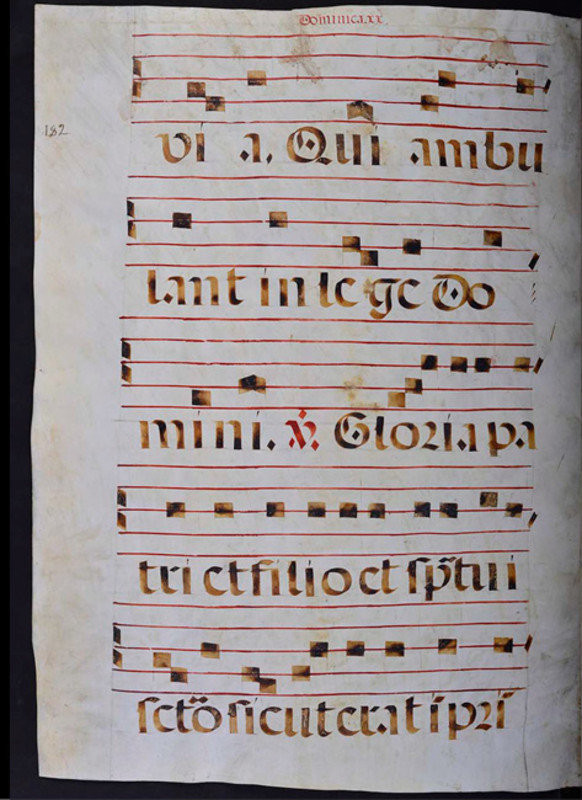 Dominica.xx.
182
vi a. Qui ambu
lant in le ge Do
mini. ℣. Gloria pa
tri et filio et sp̃tui
scto sicut erat ĩ pri